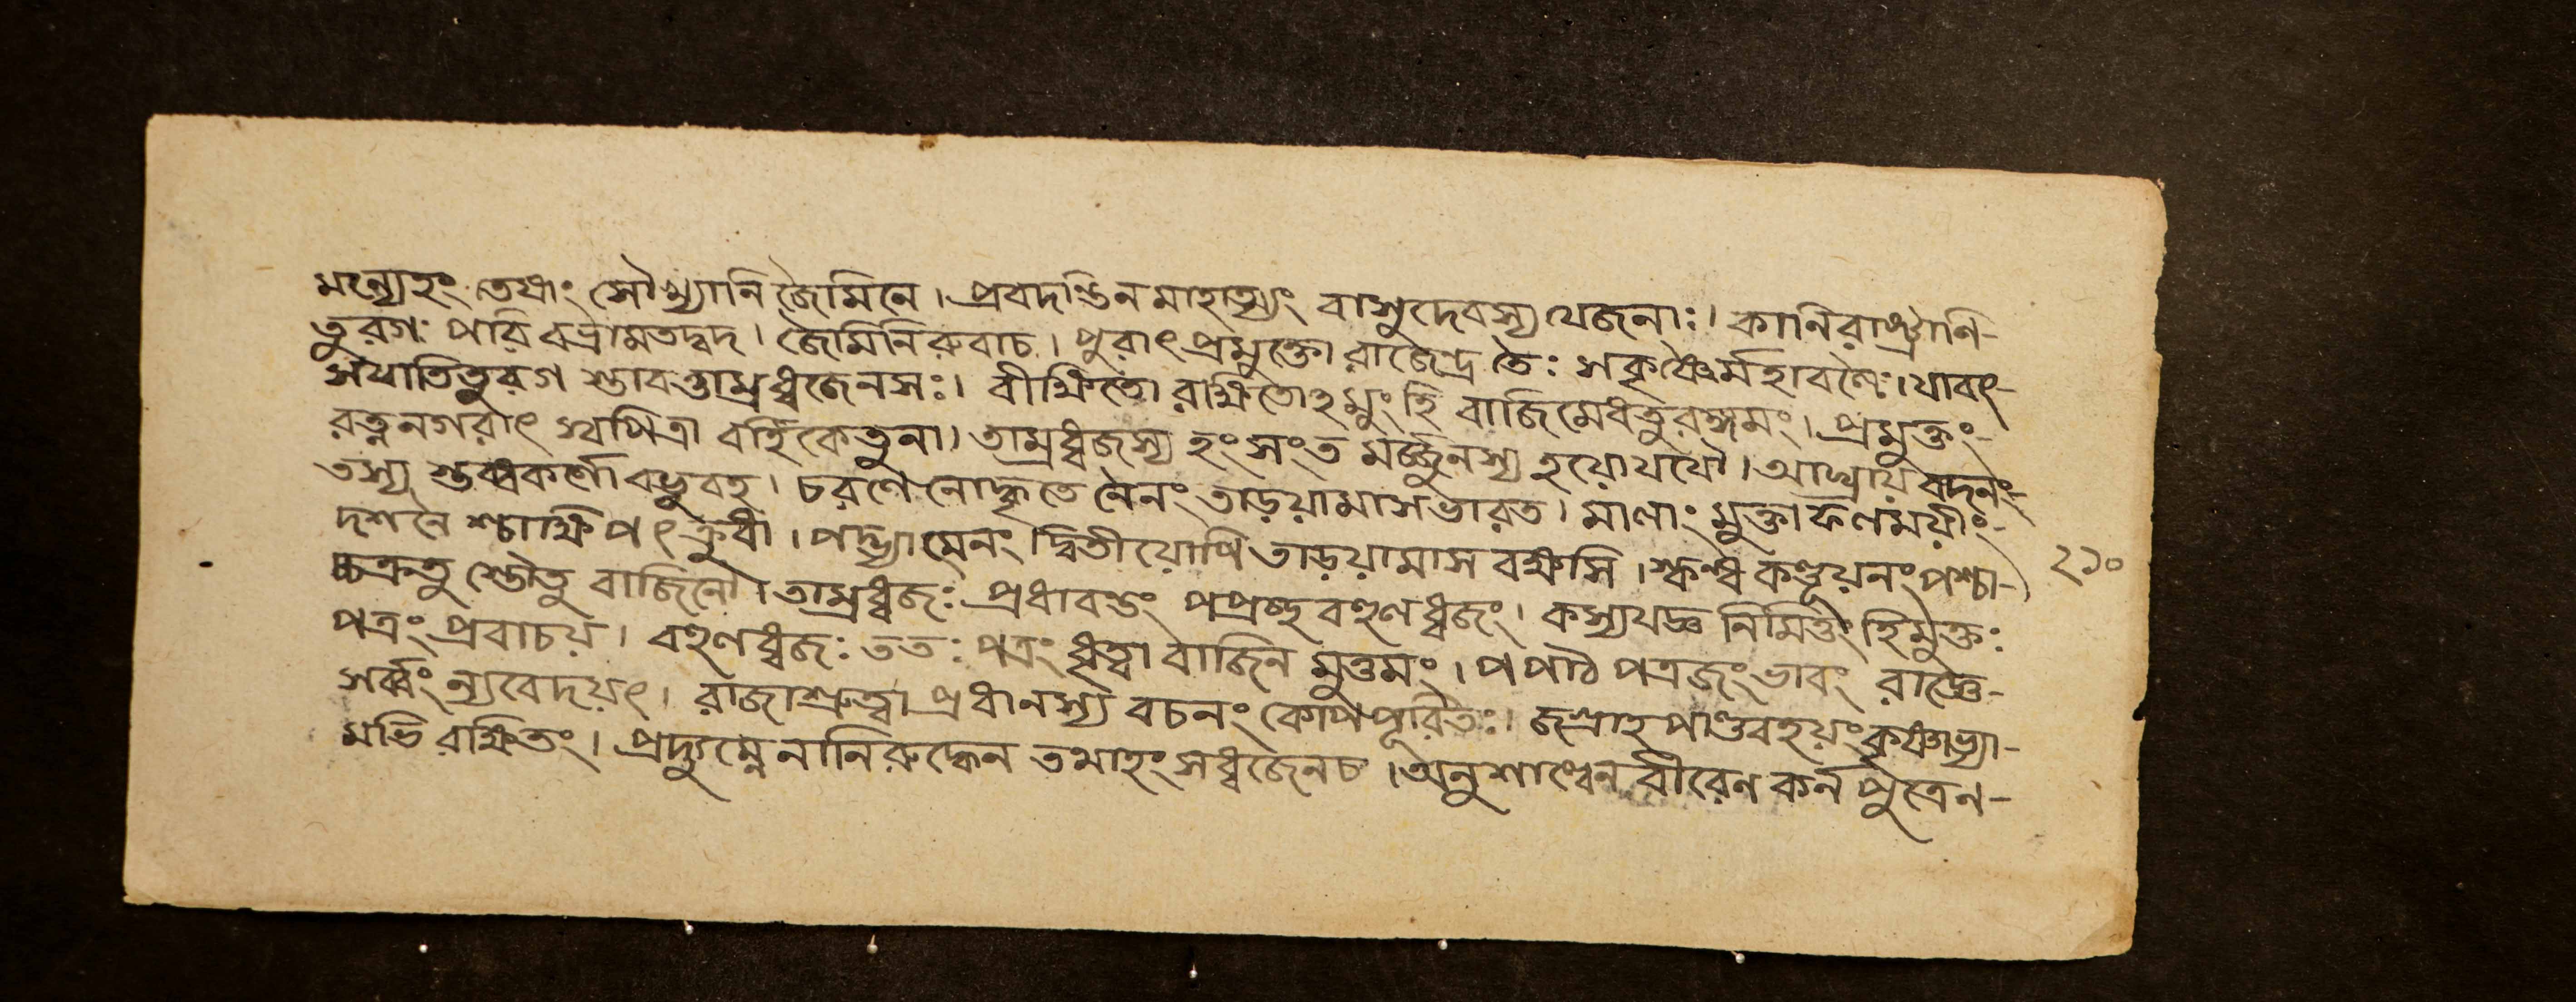 মন্যেহং তেষাং সৌখ্যানি জৈমিনে। প্রবদন্তিন মাহাত্ম্যং বাসুদেবস্য যেজনাঃ। কানিরাষ্ট্রাণি-
তুরগঃ পরি বভ্রামতদ্বদ। জৈমিনিরুবাচ। পুরাৎ প্রমুক্তো রাজেন্দ্র তৈঃ সকৃষ্ণৈর্মহাবলৈঃ। যাবৎ-
সযাতিতুরগ স্তাবত্তাম্রধ্বজেনসঃ। বীক্ষিতো রক্ষিতোহমুং হি বাজিমেধতুরঙ্গমং। প্রমুক্তং-
রত্ননগরাৎ স্বপিত্রা বর্হিকেতুনা। তাম্রধ্বজস্য হংসংত মর্জ্জুনস্য হয়োযযৌ। আঘ্রায় বদনং-
তস্য স্তব্ধকর্ণো বভুবহ। চরণে নোদ্ধৃতে নৈনং তাড়য়ামাসভারত। মালাং মুক্তাফলময়ীং-
দশনৈ শ্চাক্ষিপৎ ক্রুধী। পদ্ভ্যামেনং দ্বিতীয়োপি তাড়য়ামাস বক্ষসি। স্কন্ধ কণ্ডূয়নং পশ্চা-
২১০
চ্চক্রতু স্তৌতু বাজিনৌ। তাম্রধ্বজঃ প্রধাবন্তং পপ্রচ্ছ বহুলধ্বজং। কস্যযজ্ঞ নিমিত্তং হিমুক্তঃ
পত্রং প্রবাচয়। বহুলধ্বজঃ ততঃ পত্রং ধৃত্বা বাজিন মুত্তমং। পপাঠ পত্রজংভাবং রাজ্ঞৈ-
সর্ব্বং ন্যবেদয়ৎ। রাজাশ্রুত্বা প্রধানস্য বচনং কোপপূরিতঃ। জগ্রাহ পাণ্ডবহয়ং কৃষ্ণাভ্যা-
মভি রক্ষিতং। প্রদ্যুম্নেনানিরুদ্ধেন তথাহং সধ্বজেনচ। অনুশাল্বেন বীরেণ কর্ন পুত্রেন-